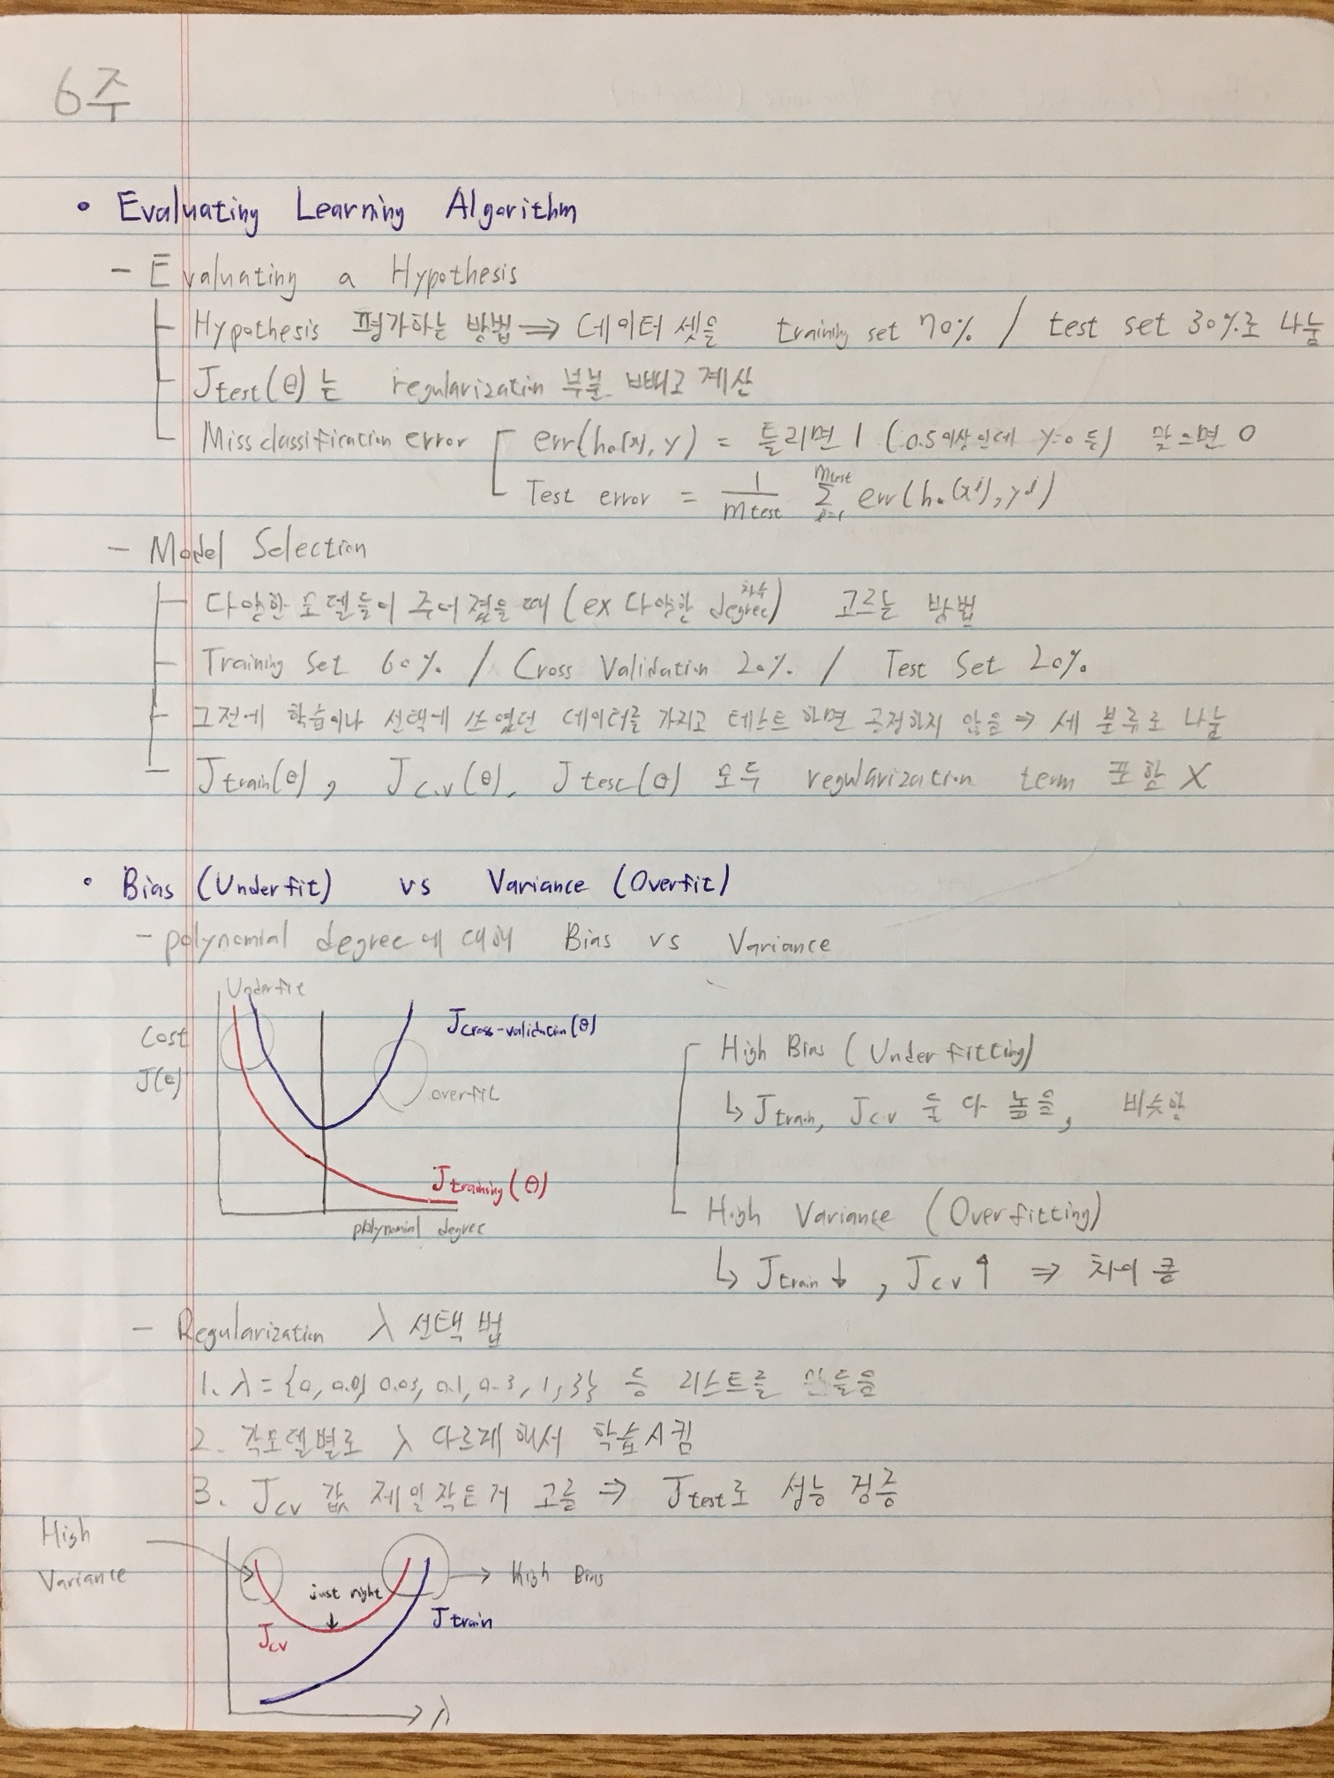 6주
• Evaluating Learning Algorithm
- Evaluating a Hypothesis
Hypothesis 평가하는 방법 ⇒ 데이터 셋을 training set 70% / test set 30%로 나눔
Jtest(θ)는 regularization 부분 빼고 계산
Miss classification error
err(hθ(x), y) = 틀리면 1 (0.5이상인데 y=0 등) 맞으면 0
Test error = 1/mtest Σ err(hθ(xⁱ), yⁱ)
- Model Selection
다양한 모델들이 주어졌을 때 (ex 다양한 degree 차수) 고르는 방법
Training Set 60% / Cross Validation 20% / Test Set 20%
그전에 학습이나 선택에 쓰였던 데이터를 가지고 테스트 하면 공정하지 않음 ⇒ 세 분류로 나눔
Jtrain(θ), Jc.v(θ), Jtest(θ) 모두 regularization term 포함 X
• Bias (Underfit) vs Variance (Overfit)
- polynomial degree에 대해 Bias vs Variance
Underfit
Cost J(θ)
Jcross-validation(θ)
overfit
Jtraining(θ)
polynomial degree
High Bias (Underfitting)
↳ Jtrain, Jcv 둘 다 높음, 비슷함
High Variance (Overfitting)
↳ Jtrain↓, Jcv↑ ⇒ 차이 큼
- Regularization λ 선택 법
1. λ = {0, 0.01, 0.03, 0.1, 0.3, 1, 3} 등 리스트를 만들음
2. 각모델별로 λ 다르게 해서 학습시킴
3. Jcv 값 제일작은거 고름 ⇒ Jtest로 성능 검증
High Variance
just right
Jcv
High Bias
Jtrain
λ